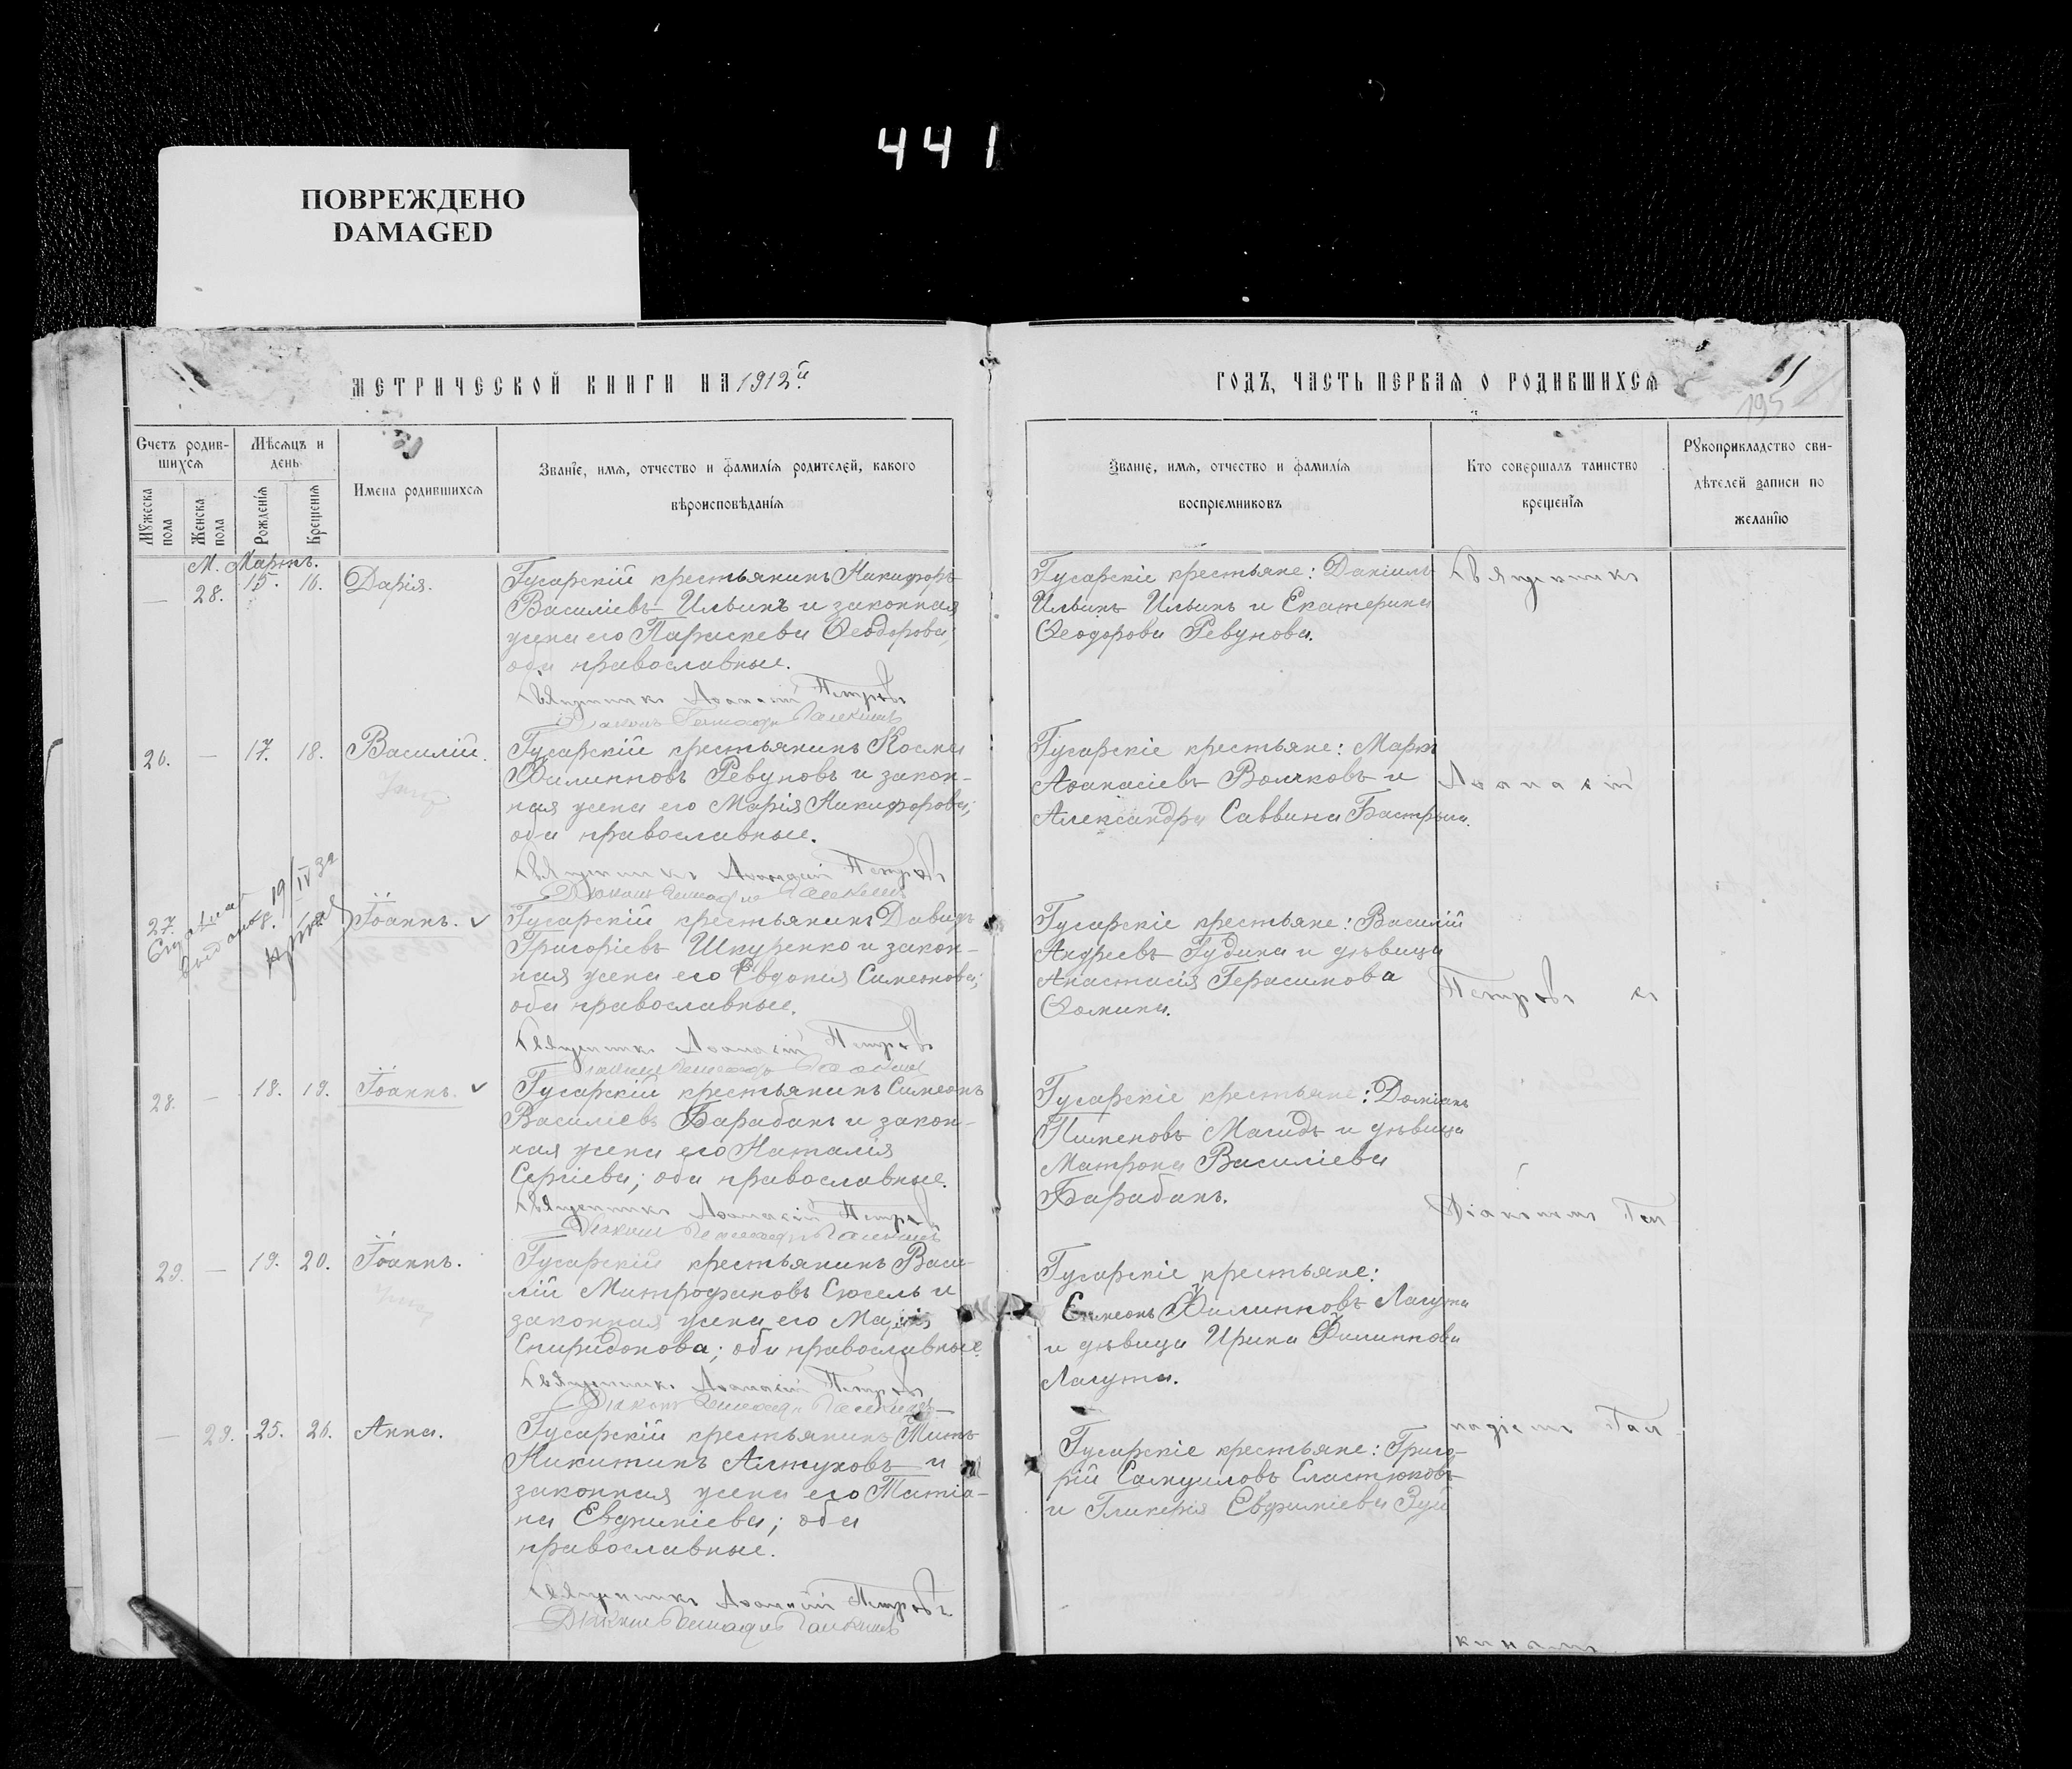 441
ПОВРЕЖДЕНО
DAMAGED
МЕТРИЧЕСКОЙ КНИГИ НА 1912й
ГОДЪ, ЧАСТЬ ПЕРВАЯ О РОДИВШИХСЯ
195
Счетъ родив-
шихся
Мѣсяцъ и
день
Имена родившихся
Званіе, имя, отчество и фамилія родителей, какого
вѣроисповѣданія
Мужеска
пола
Женска
пола
Рожденія
Крещенія
Званіе, имя, отчество и фамилія
воспріемниковъ
Кто совершалъ таинство
крещенія
Рукоприкладство сви-
дѣтелей записи по
желанію
М. Мартъ.
— 28. 15. 16. Дарія.
Гусарскій крестьянинъ Никифоръ
Василіевъ Ильинъ и законная
жена его Параскева Ѳеодорова;
оба православные.
Священникъ Аѳанасій Петровъ
Діаконъ Геннадій Галкинъ
Гусарскіе крестьяне: Даніилъ
Ильинъ Ильинъ и Екатерина
Ѳеодорова Ревунова.
Священникъ
26. — 17. 18. Василій.
Гусарскій крестьянинъ Косма
Филипповъ Ревуновъ и закон-
ная жена его Марія Никифорова;
оба православные.
Священникъ Аѳанасій Петровъ
Діаконъ Геннадій Галкинъ
Гусарскіе крестьяне: Маркъ
Аѳанасіевъ Волковъ и
Александра Саввина Бастрыга.
Аѳанасій
27. 18. 19/IV 32
Іоаннъ.
Гусарскій крестьянинъ Давидъ
Григоріевъ Шкуренко и закон-
ная жена его Евдокія Симеонова;
оба православные.
Священникъ Аѳанасій Петровъ
Діаконъ Геннадій Галкинъ
Гусарскіе крестьяне: Василій
Андреевъ Гудина и дѣвица
Анастасія Герасимова
Ѳомина.
Петровъ съ
28. — 18. 19. Іоаннъ.
Гусарскій крестьянинъ Симеонъ
Василіевъ Барабанъ и закон-
ная жена его Наталія
Сергіева; оба православные.
Священникъ Аѳанасій Петровъ
Діаконъ Геннадій Галкинъ
Гусарскіе крестьяне: Доміанъ
Пименовъ Магидъ и дѣвица
Матрона Василіева
Барабанъ.
Діакономъ Ген
29. — 19. 20. Іоаннъ.
Гусарскій крестьянинъ Васи-
лій Митрофановъ Сюсель и
законная жена его Марія
Спиридонова; оба православные.
Священникъ Аѳанасій Петровъ
Діаконъ Геннадій Галкинъ
Гусарскіе крестьяне:
Симеонъ Филипповъ Лагута
и дѣвица Ирина Филиппова
Лагута.
надіемъ Гал
— 29. 25. 26. Анна.
Гусарскій крестьянинъ Титъ
Никитинъ Алтуховъ и
законная жена его Татіа-
на Евфиміева; оба
православные.
Священникъ Аѳанасій Петровъ
Діаконъ Геннадій Галкинъ
Гусарскіе крестьяне: Григо-
рій Самуиловъ Сластюковъ
и Гликерія Евфиміева Зуй
кинымъ